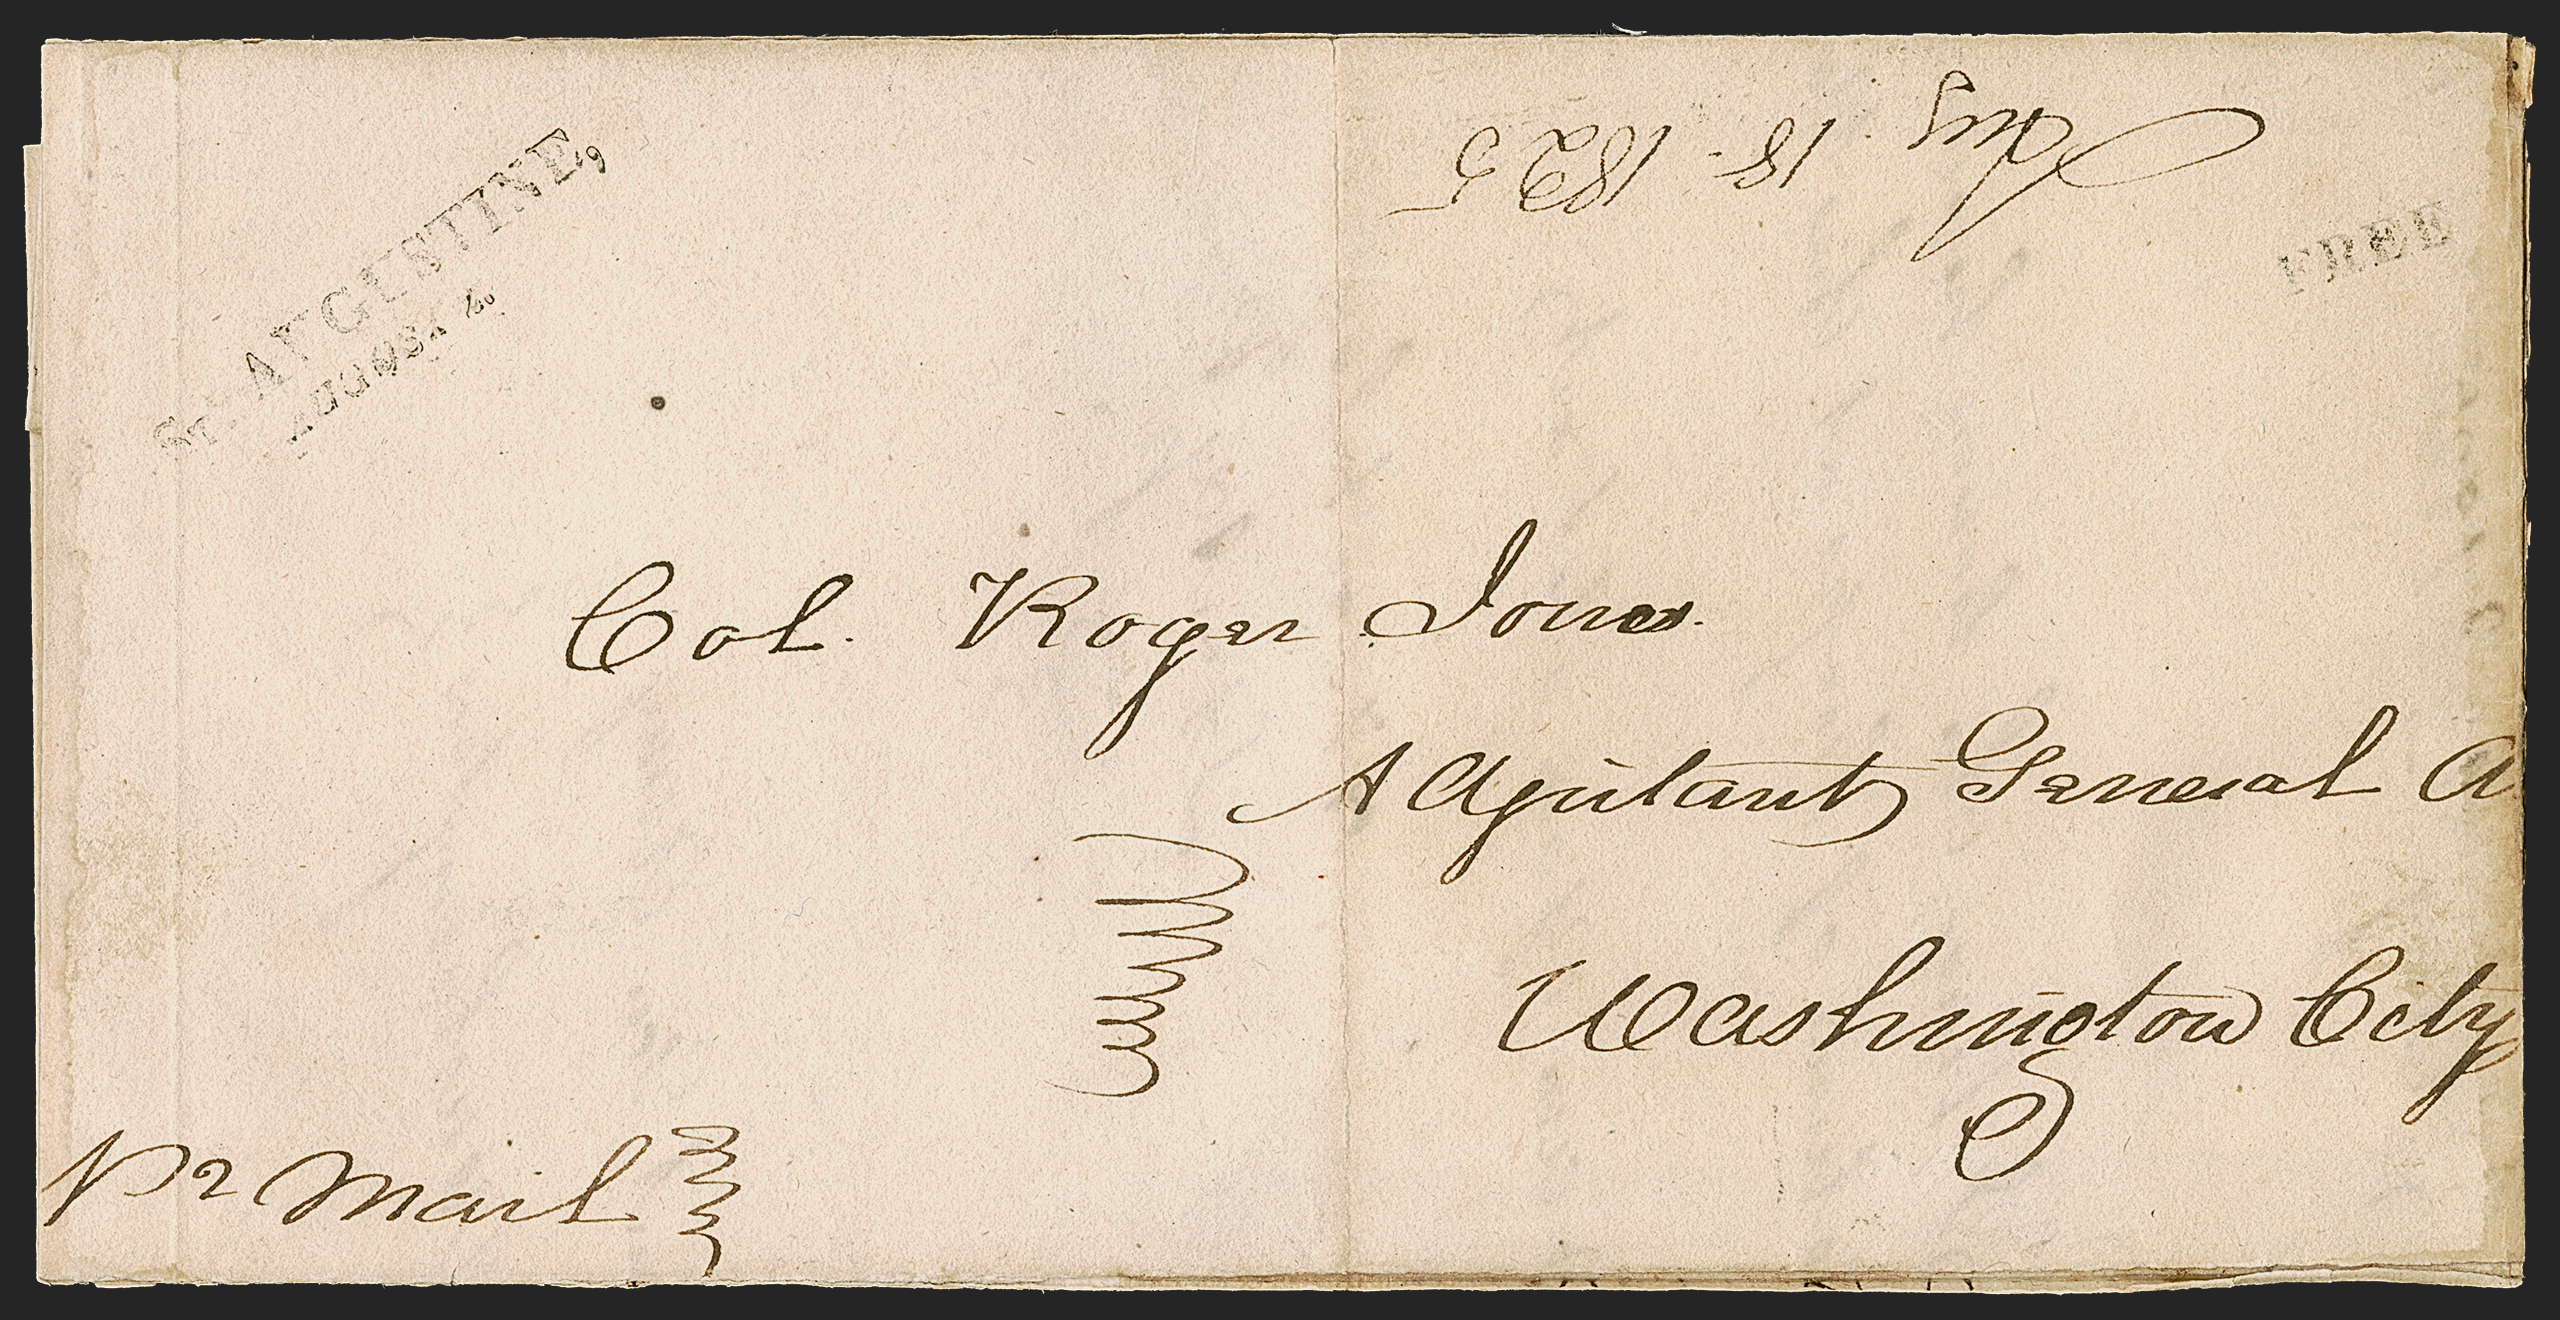 ST. AUGUSTINE,
AUGUST
Aug 18. 1825
FREE
Col. Roger Jones.
Adjutant General A
Washington City
Pr Mail